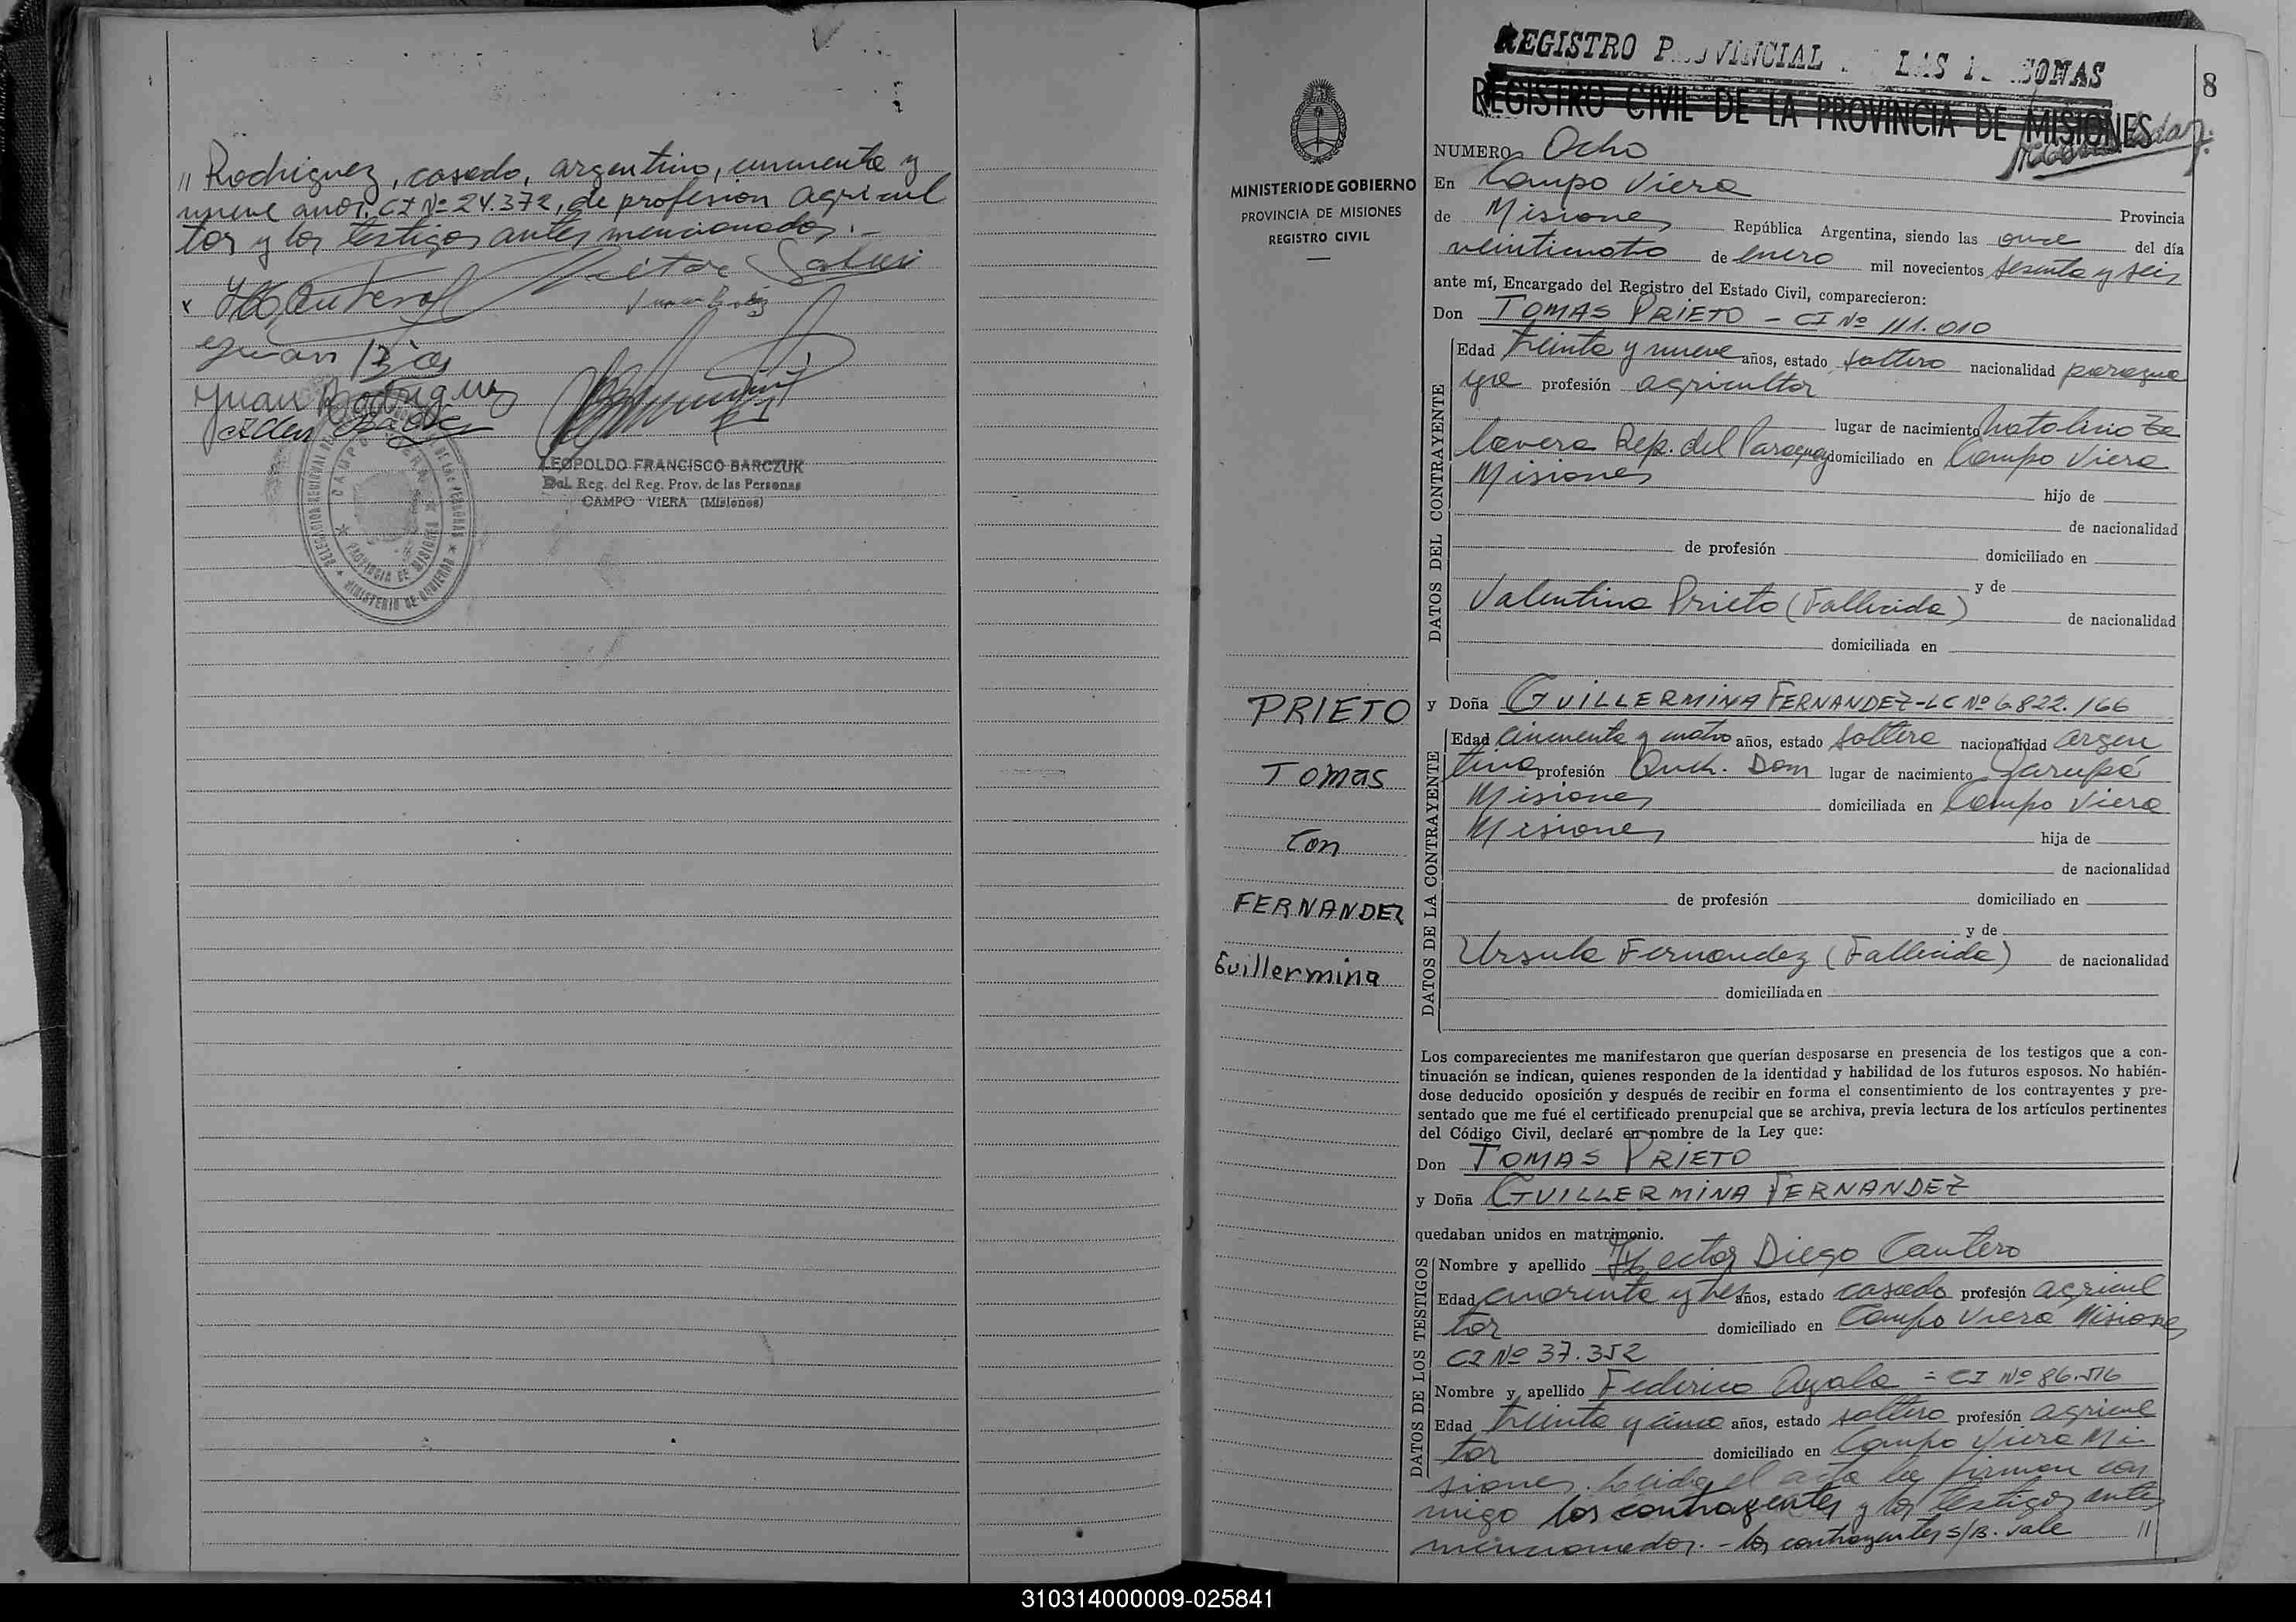 // Rodriguez, casado, argentino, cincuenta y
nueve años, CI Nº 24.372, de profesion agricul
tor y los testigos antes mencionados.-
Juan Rodriguez
LEOPOLDO FRANCISCO BARCZUK
Del. Reg. del Reg. Prov. de las Personas
CAMPO VIERA (Misiones)
PROVINCIA DE MISIONES
MINISTERIO DE GOBIERNO
REGISTRO PROVINCIAL LAS PERSONAS
8
REGISTRO CIVIL DE LA PROVINCIA DE MISIONES
MINISTERIO DE GOBIERNO
PROVINCIA DE MISIONES
REGISTRO CIVIL
NUMERO Ocho
En Campo Viera
Provincia
de Misiones República Argentina, siendo las once del día
veinticuatro de enero mil novecientos sesenta y seis
ante mí, Encargado del Registro del Estado Civil, comparecieron:
Don TOMAS PRIETO - CI Nº 111.010
DATOS DEL CONTRAYENTE
Edad treinta y nueve años, estado soltero nacionalidad paragua
yo profesión agricultor
lugar de nacimiento Natalicio Ta
lavera Rep. del Paraguay domiciliado en Campo Viera
Misiones hijo de
de nacionalidad
de profesión domiciliado en
y de
Valentina Prieto (Fallecida) de nacionalidad
domiciliada en
PRIETO
Tomas
Con
FERNANDEZ
Guillermina
y Doña GUILLERMINA FERNANDEZ-LC Nº 6.822.166
DATOS DE LA CONTRAYENTE
Edad cincuenta y cuatro años, estado soltera nacionalidad argen
tina profesión Queh. Dom lugar de nacimiento Garupá
Misiones domiciliada en Campo Viera
Misiones hija de
de nacionalidad
de profesión domiciliado en
y de
Ursula Fernandez (Fallecida) de nacionalidad
domiciliada en
Los comparecientes me manifestaron que querían desposarse en presencia de los testigos que a con-
tinuación se indican, quienes responden de la identidad y habilidad de los futuros esposos. No habién-
dose deducido oposición y después de recibir en forma el consentimiento de los contrayentes y pre-
sentado que me fué el certificado prenupcial que se archiva, previa lectura de los artículos pertinentes
del Código Civil, declaré en nombre de la Ley que:
Don TOMAS PRIETO
y Doña GUILLERMINA FERNANDEZ
quedaban unidos en matrimonio.
DATOS DE LOS TESTIGOS
Nombre y apellido Hector Diego Cantero
Edad cuarenta y tres años, estado casado profesión agricul
tor domiciliado en Campo Viera Misiones
CI Nº 37.352
Nombre y apellido Federico Ayala = CI Nº 86.516
Edad treinta y cinco años, estado soltero profesión agricul
tor domiciliado en Campo Viera Mi-
siones. Leida el acta la firman con
migo los contrayentes y los testigos antes
mencionados. - los contrayentes s/B. vale //
310314000009-025841